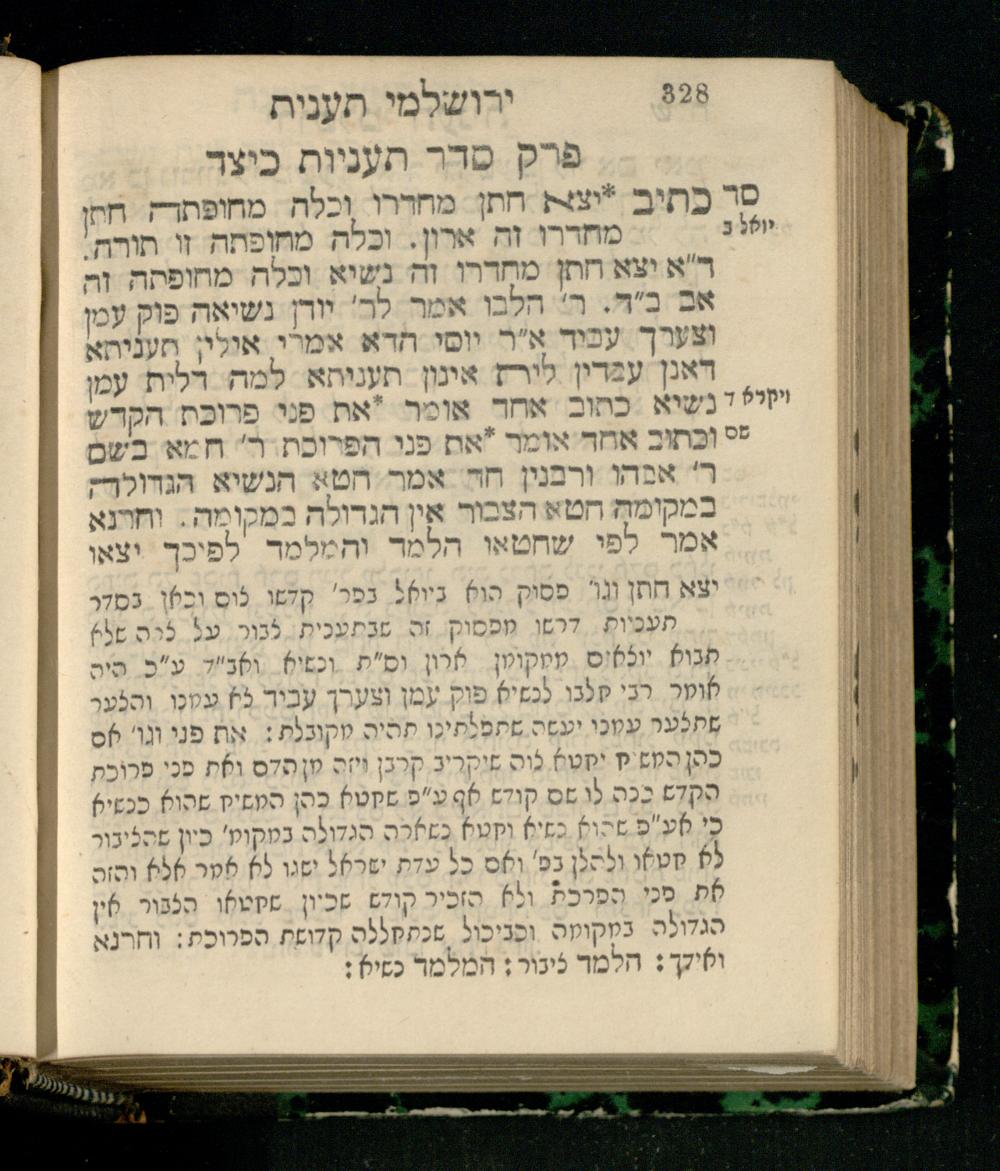 328
ירושלמי תענית
פרק סדר תעניות כיצד
סד כתיב *יצא חתן מחדרו וכלה מחופתה חתן
יואל ב
מחדרו זה ארון. וכלה מחופתה זו תורה.
ד״א יצא חתן מחדרו זה נשיא וכלה מחופתה זה
אב ב״ד. ר׳ הלבו אמר לר׳ יודן נשיאה פוק עמן
וצערך עביד א״ר יוסי הדא אמרי אילין תעניתא
דאנן עבדין לית אינון תעניתא למה דלית עמן
ויקרא ד
נשיא כתוב אחד אומר *את פני פרוכת הקדש
שם
וכתוב אחד אומר *את פני הפרוכת ר׳ חמא בשם
ר׳ אבהו ורבנין חד אמר חטא הנשיא הגדולה
במקומה חטא הצבור אין הגדולה במקומה. וחרנא
אמר לפי שחטאו הלמד והמלמד לפיכך יצאו
יצא חתן וגו׳ פסוק הוא ביואל בפר׳ קדשו צום וכאן בסדר
תעניות דרשו מפסוק זה שבתענית צבור על צרה שלא
תבוא יוצאים ממקומן ארון וס״ת ונשיא ואב״ד ע״כ היה
אומר רבי חלבו לנשיא פוק עמן וצערך עביד צא עמנו והצער
שתצער עמנו יעשה שתפלתינו תהיה מקובלת: את פני וגו׳ אם
כהן המשיח יחטא צוה שיקריב קרבן ויזה מן הדם ואת פני פרוכת
הקדש ככה לו שם קודש אף ע״פ שחטא כהן המשיח שהוא כנשיא
כי אע״פ שהוא נשיא וחטא נשארה הגדולה במקומ׳ כיון שהציבור
לא חטאו ולהלן בפ׳ ואם כל עדת ישראל ישגו לא אמר אלא והזה
את פני הפרכת ולא הזכיר קודש שכיון שחטאו הצבור אין
הגדולה במקומה וכביכול שנתחללה קדושת הפרוכת: וחרנא
ואידך: הלמד ציבור: המלמד נשיא: